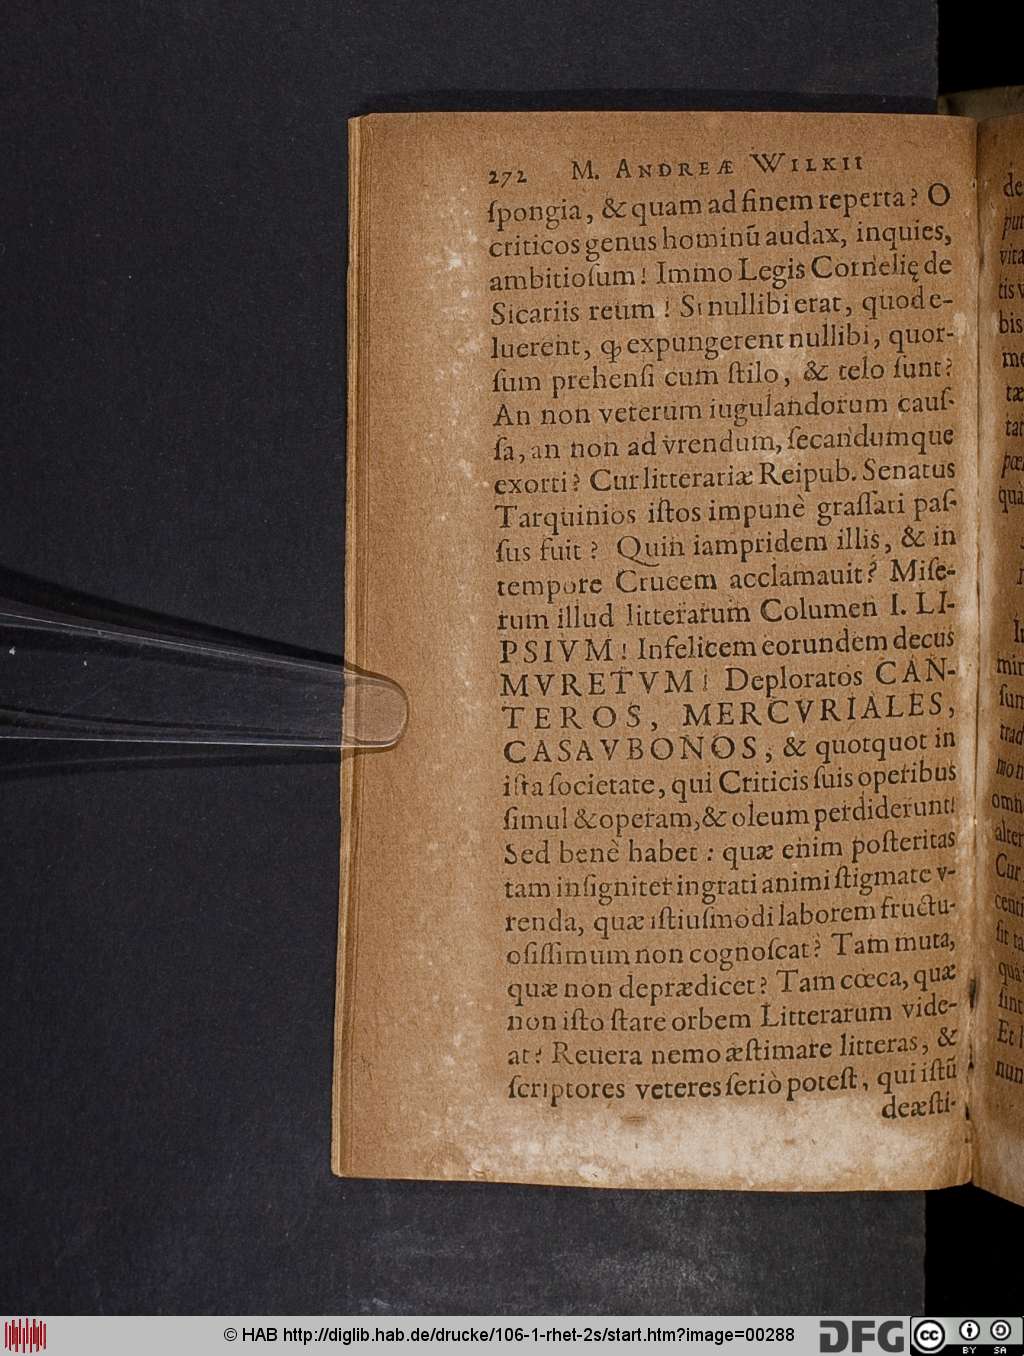 272 M. ANDREÆ WILKII
ſpongia, & quam ad finem reperta? O
criticos genus hominũ audax, inquies,
ambitioſum! Immo Legis Cornelię de
Sicariis reum! Si nullibi erat, quod e-
luerent, ꝙ expungerent nullibi, quor-
ſum prehenſi cum ſtilo, & telo ſunt?
An non veterum iugulandorum cauſ-
ſa, an non ad vrendum, ſecandumque
exorti? Cur litterariæ Reipub. Senatus
Tarquinios iſtos impunè graſſati paſ-
ſus fuit? Quin iampridem illis, & in
tempore Crucem acclamauit? Miſe-
rum illud litterarum Columen I. LI-
PSIVM! Infelicem eorundem decus
MVRETVM! Deploratos CAN-
TEROS, MERCVRIALES,
CASAVBONOS, & quotquot in
iſta ſocietate, qui Criticis ſuis operibus
ſimul & operam, & oleum perdiderunt!
Sed benè habet: quæ enim poſteritas
tam inſigniter ingrati animi ſtigmate v-
renda, quæ iſtiuſmodi laborem fructu-
oſiſſimum non cognoſcat? Tam muta,
quæ non deprædicet? Tam cœca, quæ
non iſto ſtare orbem Litterarum vide-
at? Reuera nemo æſtimare litteras, &
ſcriptores veteres ſeriò poteſt, qui iſtũ
deæſti-
de
put
vita
tis v
bis
me
tæ
tat
pœ
quà
In
min
ſun
trad
mon
omn
alter
Cur
centi
ſit ta
quà
ſint
Et
nun
© HAB http://diglib.hab.de/drucke/106-1-rhet-2s/start.htm?image=00288
DFG
cc BY SA